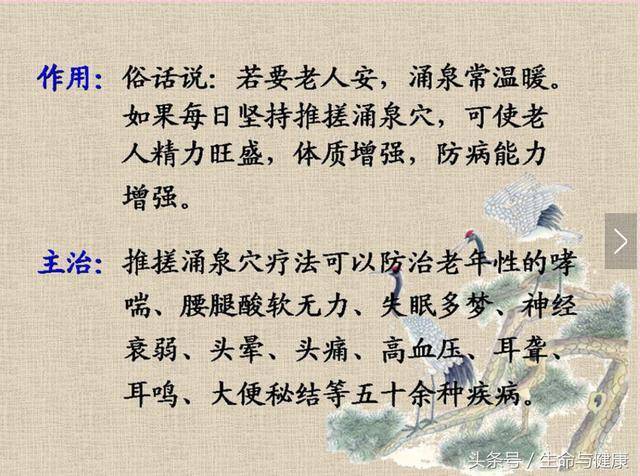 作用：俗话说：若要老人安，涌泉常温暖。
如果每日坚持推搓涌泉穴，可使老
人精力旺盛，体质增强，防病能力
增强。
主治：推搓涌泉穴疗法可以防治老年性的哮
喘、腰腿酸软无力、失眠多梦、神经
衰弱、头晕、头痛、高血压、耳聋、
耳鸣、大便秘结等五十余种疾病。
头条号／生命与健康